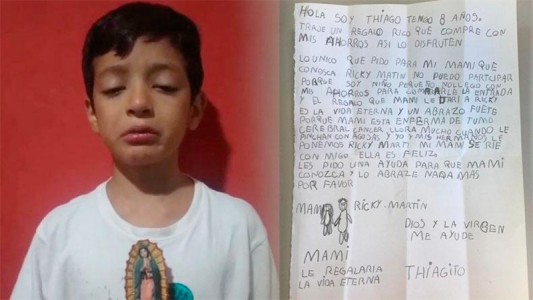 HOLA SOY THIAGO TENGO 8 AÑOS.
TRAJE UN REGALO RICO QUE COMPRE CON
MIS AHORROS ASI LO DISFRUTEN
LO UNICO QUE PIDO PARA MI MAMI QUE
CONOSCA RICKY MATIN NO PUEDO PARTICIPAR
PORQUE SOY NIÑO PEQUEÑO NO LLEGO CON
MIS AHORROS PARA COMPRARLE LA ENTRADA
Y EL REGALO QUE MAMI LE DARIA A RICKY
ES LA VIDA ETERNA Y UN ABRAZO FUETE
PORQUE MAMI ESTA ENFERMA DE TUMO
CEREBRAL CANCER LLORA MUCHO CUANDO LE
PINCHAN CON AGUJAS Y YO Y MIS HERMANOS LE
PONEMOS RICKY MARTI MI MAMI SE RIE
CON MIGO ELLA ES FELIZ
LES PIDO UNA AYUDA PARA QUE MAMI
CONOZCA Y LO ABRAZE NADA MAS
POR FAVOR
MAMI RICKY MARTIN
DIOS Y LA VIRGEN
ME AYUDE
MAMI
LE REGALARIA
LA VIDA ETERNA
THIAGITO